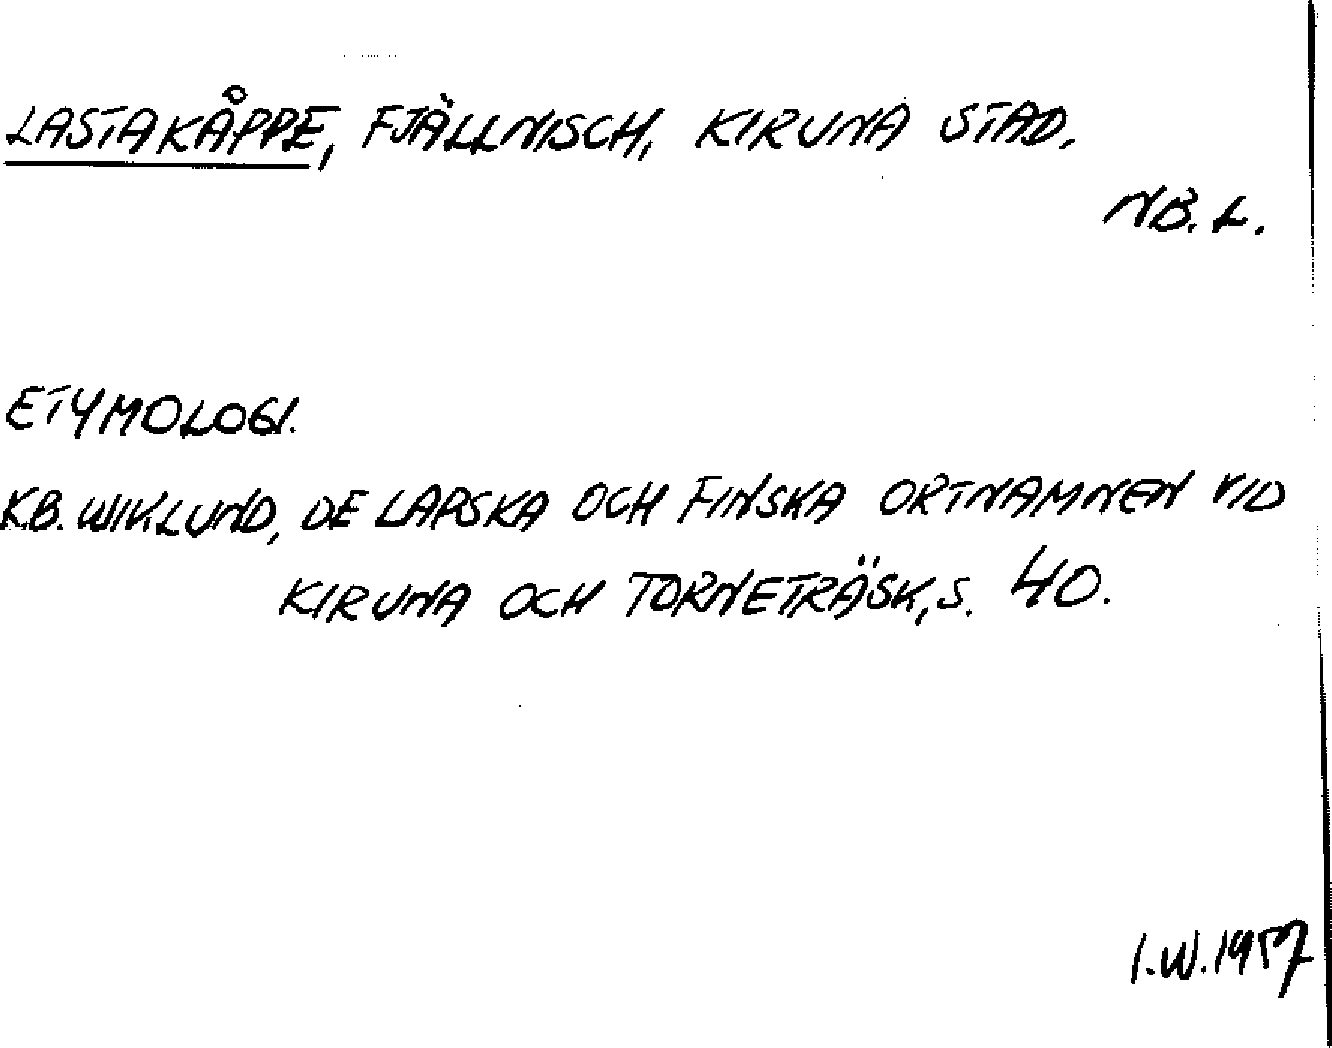 LASTAKÅPPE, FJÄLLNISCH, KIRUNA STAD.
NB. L.
ETYMOLOGI.
K.B. WIKLUND, DE LAPSKA OCH FINSKA ORTNAMNEN VID
KIRUNA OCH TORNETRÄSK, S. 40.
I.W. 1957